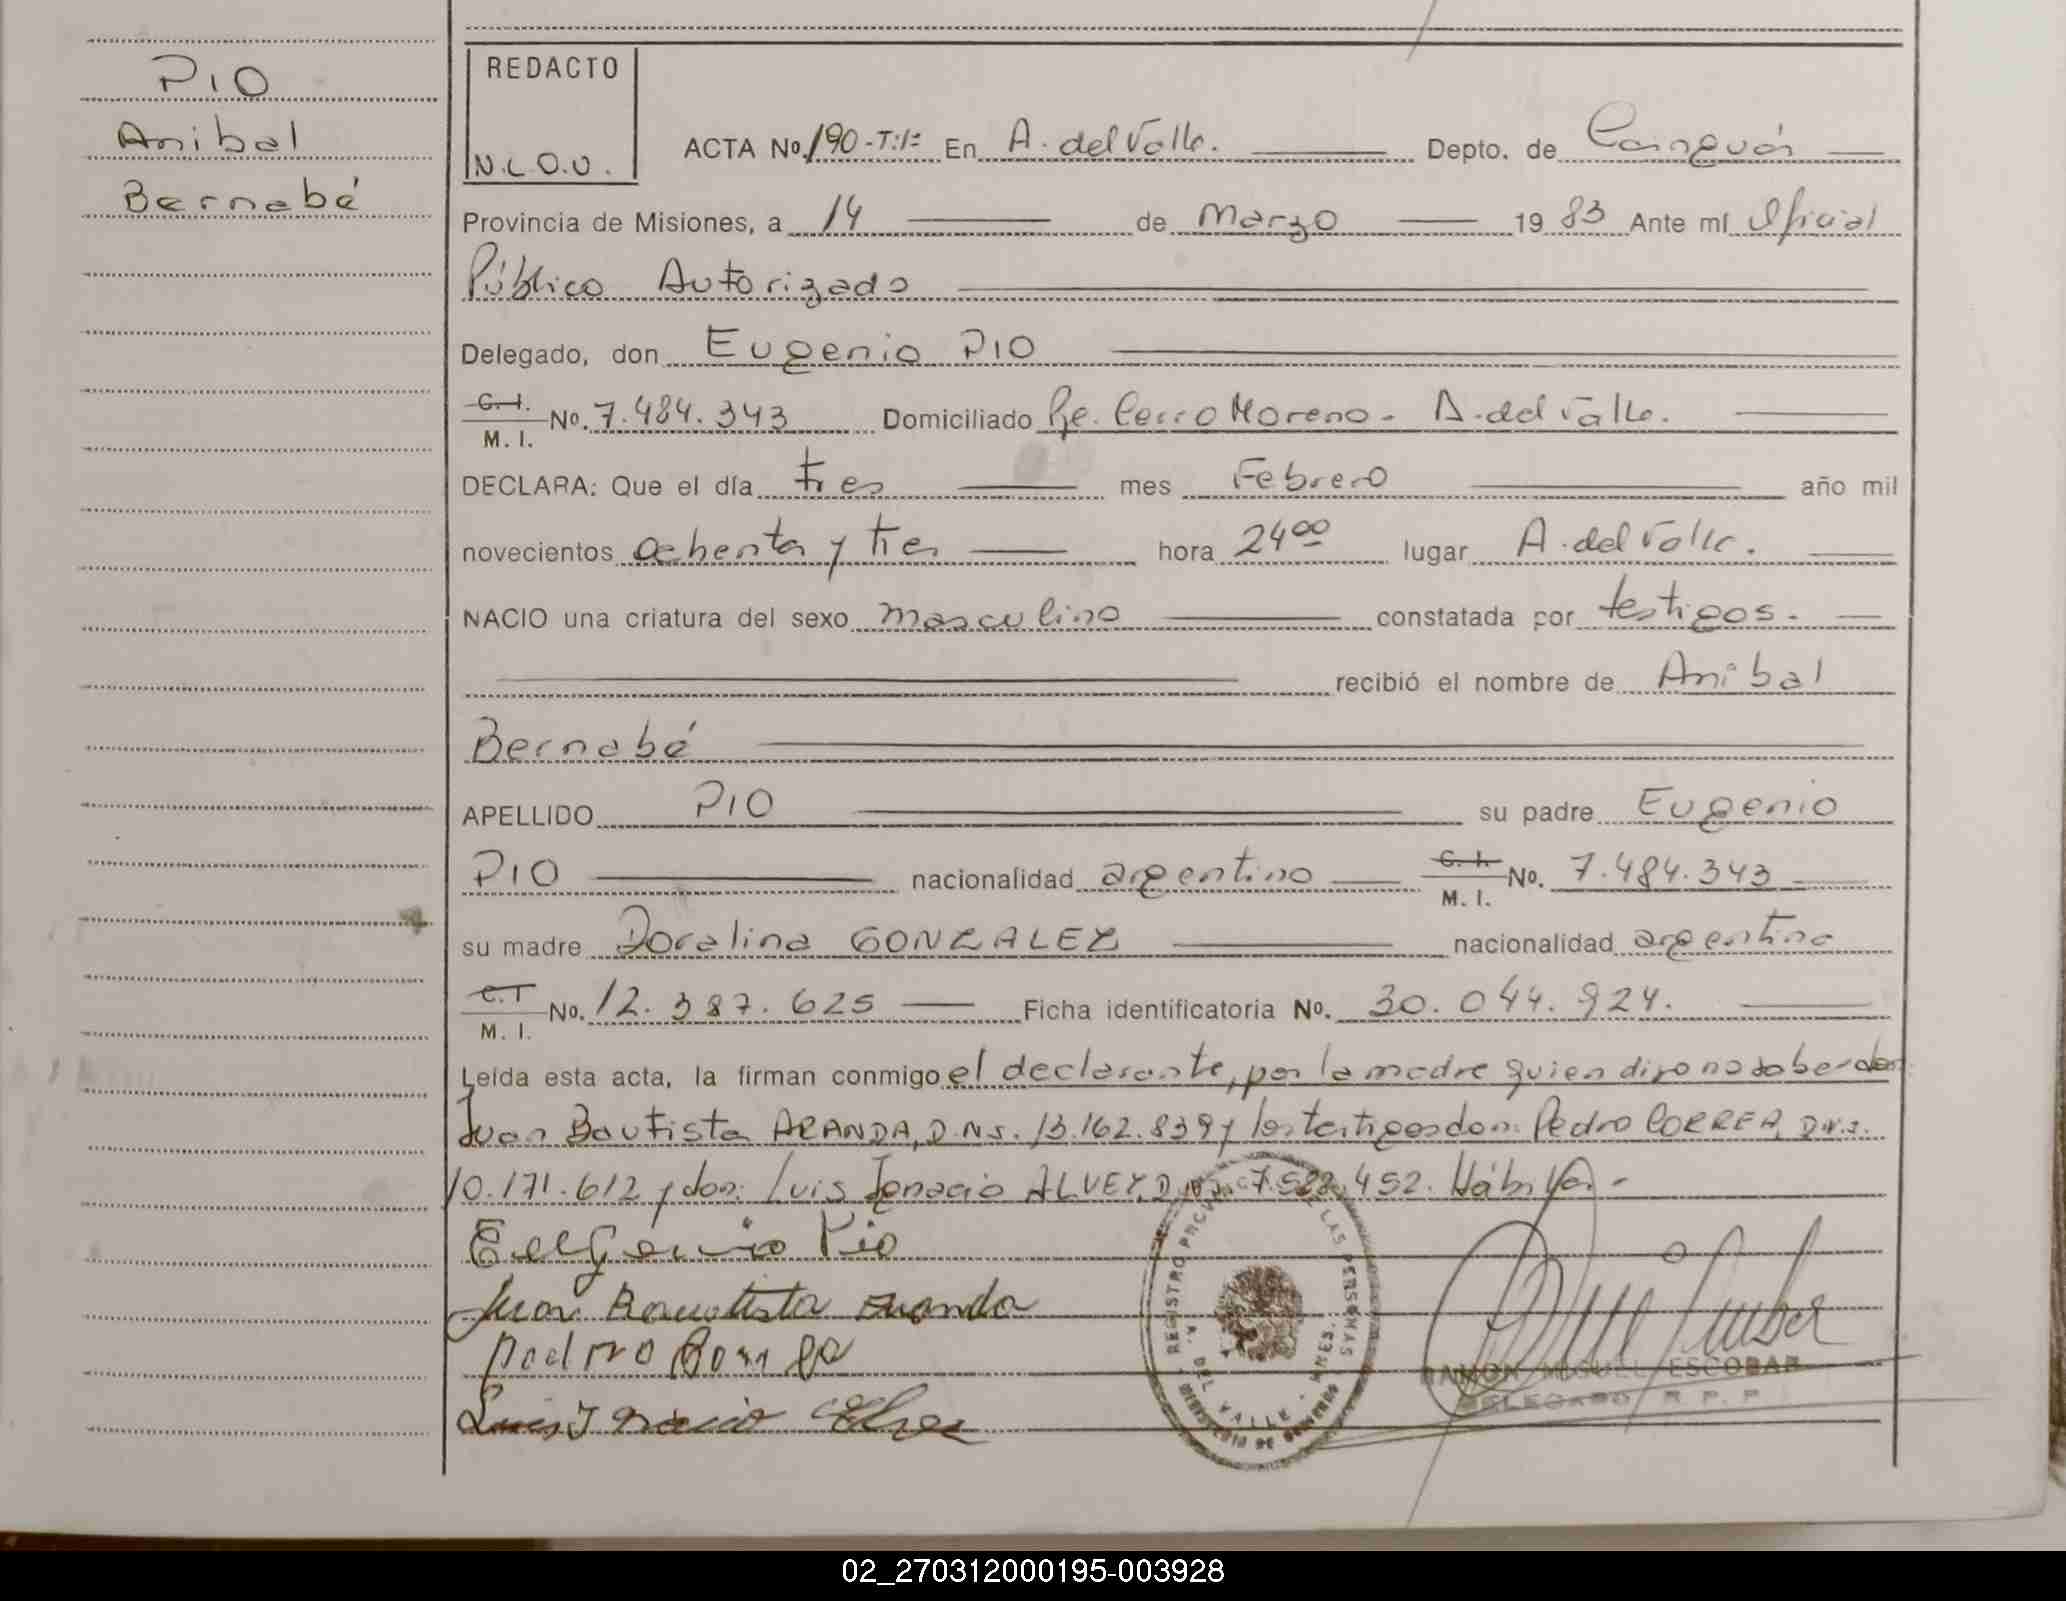 PIO
Anibal
Bernabé
REDACTO
N.L.O.U.
ACTA No. 190-T:1= En A. del Valle. Depto. de Cainguás
Provincia de Misiones, a 14 de Marzo 1983 Ante mí Oficial
Público Autorizado
Delegado, don Eugenio PIO
C.I. M.I. No. 7.484.343 Domiciliado Pje. Cerro Moreno - A. del Valle.
DECLARA: Que el día tres mes Febrero año mil
novecientos ochenta y tres hora 24 00 lugar A. del Valle.
NACIO una criatura del sexo masculino constatada por testigos.
recibió el nombre de Anibal
Bernabé
APELLIDO PIO su padre Eugenio
PIO nacionalidad argentino C.I. M.I. No. 7.484.343
su madre Doralina GONZALEZ nacionalidad argentina
C.I M.I. No. 12.387.625 Ficha identificatoria No. 30.044.924.
Leída esta acta, la firman conmigo el declarante, por la madre quien dijo no saber don
Juan Bautista ARANDA, D.N.I. 13.162.839 y los testigos don: Pedro CORREA, D.N.I.
10.171.612 y don: Luis Ignacio ALVEZ, D.N.I. 7.522.452.
Eugenio Pio
Juan Bautista Aranda
Pedro
Luis Ignacio
REGISTRO PROVINCIAL DE LAS PERSONAS
A. DEL VALLE - MNES.
RAMON MIGUEL ESCOBAR
DELEGADO R. P. P.
02_270312000195-003928